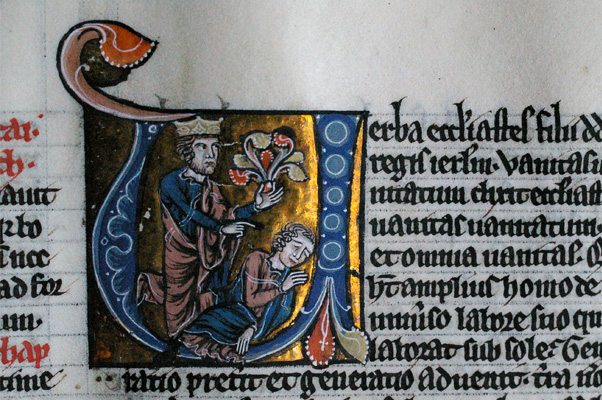 ch.
auit
rbo
nce
ad for
um.
hap
tine
Verba eccl'iastes filii dd
regis ierlm. vanitas u
nitatum dixit eccl'iast
vanitas vanitatum.
et omnia vanitas. Q
ht amplius homo de
uniuso labore suo qu
laborat sub sole? Gen
ratio pretit et generatio advenit. tra no